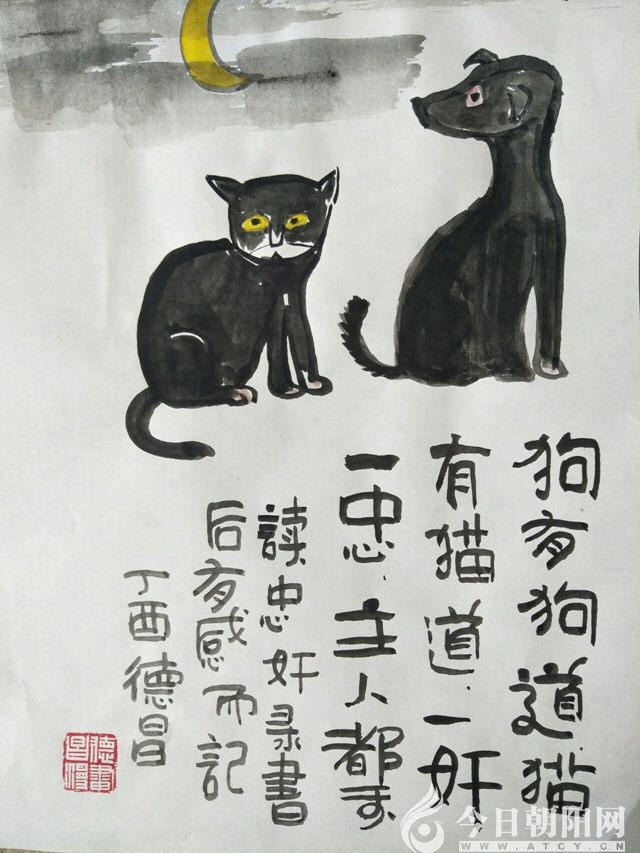 狗有狗道猫
有猫道.一奸
一忠.主人都
读忠奸录書
后有感而記
丁酉德昌
今日朝阳网
WWW.ATCY.CN